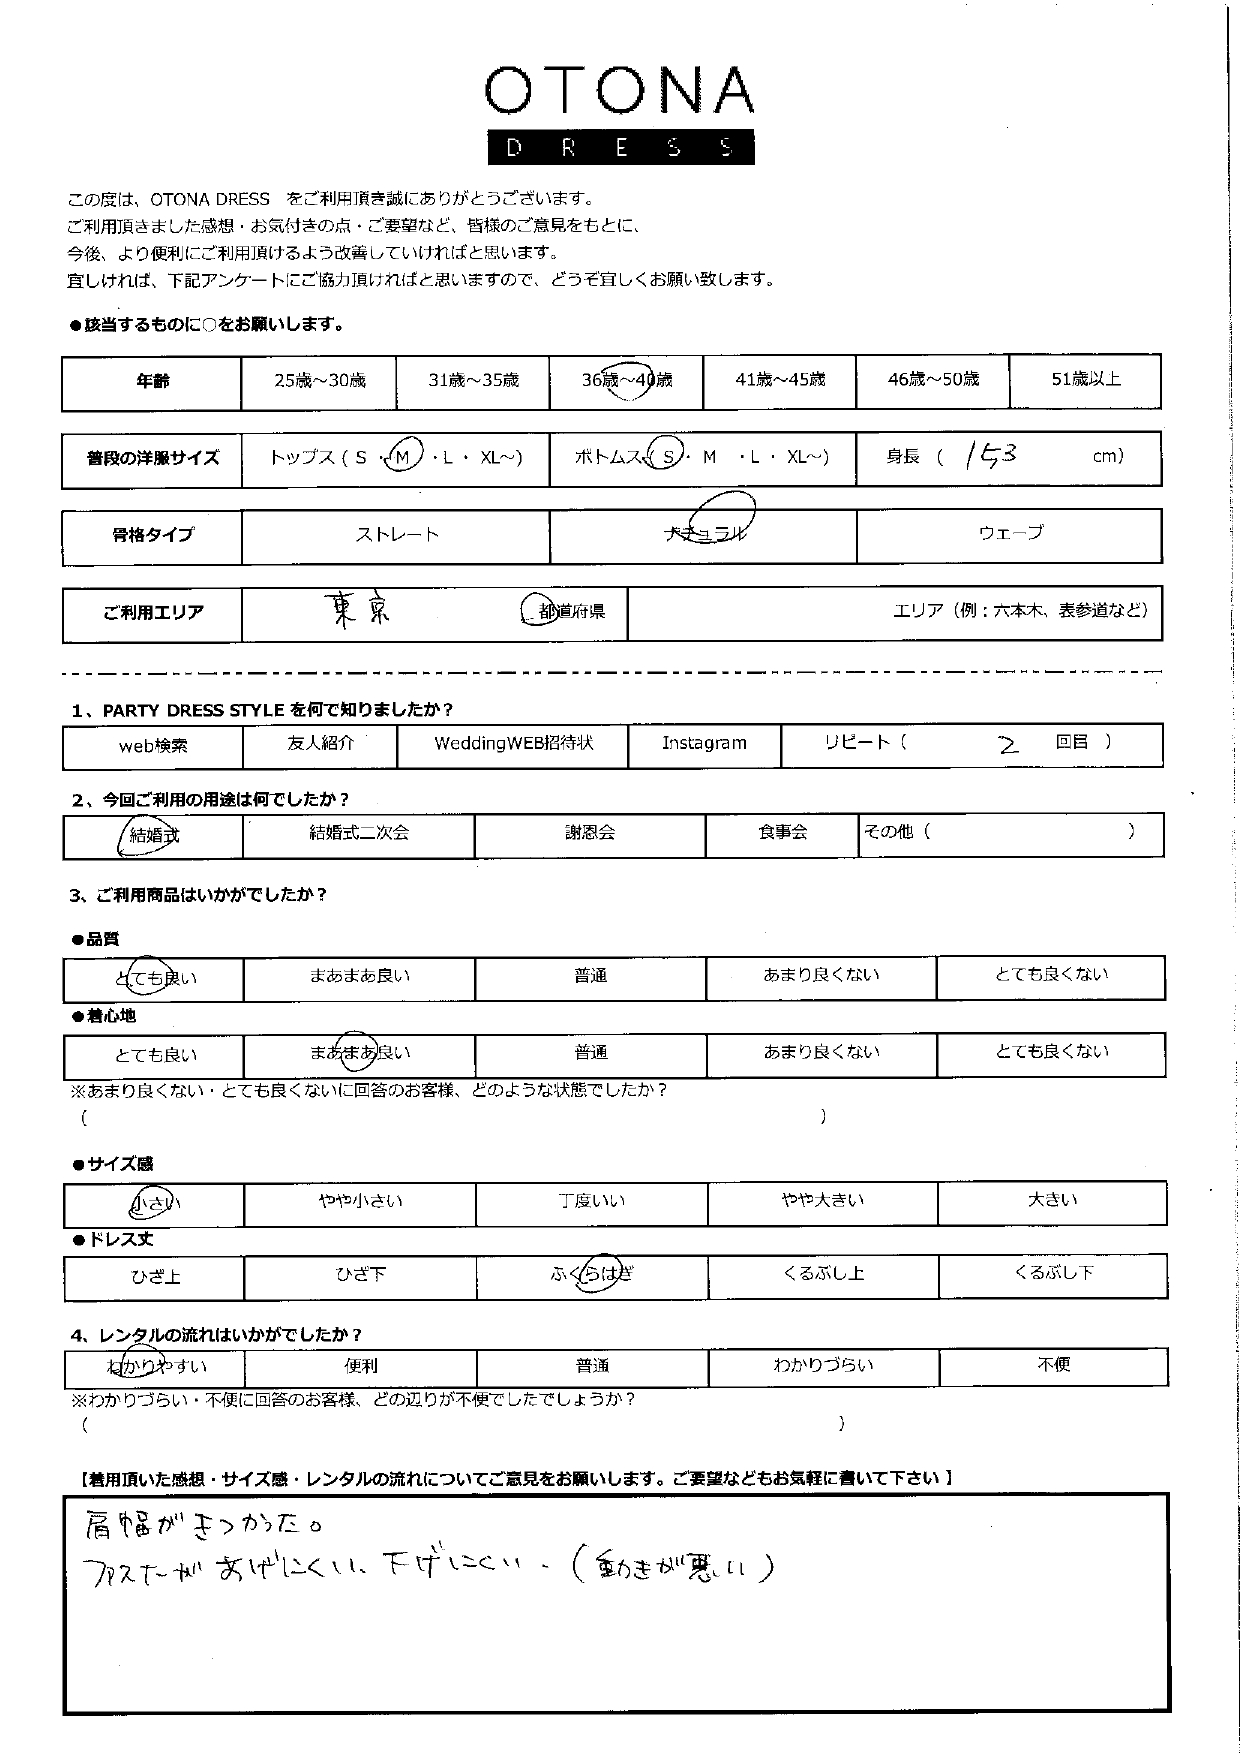 OTONA
DRESS
この度は、OTONA DRESS　をご利用頂き誠にありがとうございます。
ご利用頂きました感想・お気付きの点・ご要望など、皆様のご意見をもとに、
今後、より便利にご利用頂けるよう改善していければと思います。
宜しければ、下記アンケートにご協力頂ければと思いますので、どうぞ宜しくお願い致します。
●該当するものに○をお願いします。
年齢 25歳～30歳 31歳～35歳 36歳～40歳 41歳～45歳 46歳～50歳 51歳以上
普段の洋服サイズ トップス ( S ・ M ・L ・ XL～) ボトムス ( S ・ M ・L ・ XL～) 身長 ( 153 cm)
骨格タイプ ストレート ナチュラル ウェーブ
ご利用エリア 東京 都道府県 エリア（例：六本木、表参道など）
1、PARTY DRESS STYLE を何で知りましたか？
web検索 友人紹介 WeddingWEB招待状 Instagram リピート（ 2 回目 ）
2、今回ご利用の用途は何でしたか？
結婚式 結婚式二次会 謝恩会 食事会 その他（ ）
3、ご利用商品はいかがでしたか？
●品質
とても良い まあまあ良い 普通 あまり良くない とても良くない
●着心地
とても良い まあまあ良い 普通 あまり良くない とても良くない
※あまり良くない・とても良くないに回答のお客様、どのような状態でしたか？
( )
●サイズ感
小さい やや小さい 丁度いい やや大きい 大きい
●ドレス丈
ひざ上 ひざ下 ふくらはぎ くるぶし上 くるぶし下
4、レンタルの流れはいかがでしたか？
わかりやすい 便利 普通 わかりづらい 不便
※わかりづらい・不便に回答のお客様、どの辺りが不便でしたでしょうか？
( )
【着用頂いた感想・サイズ感・レンタルの流れについてご意見をお願いします。ご要望などもお気軽に書いて下さい 】
肩幅がきつかった。
ファスナーがあげにくい、下げにくい.（動きが悪い）